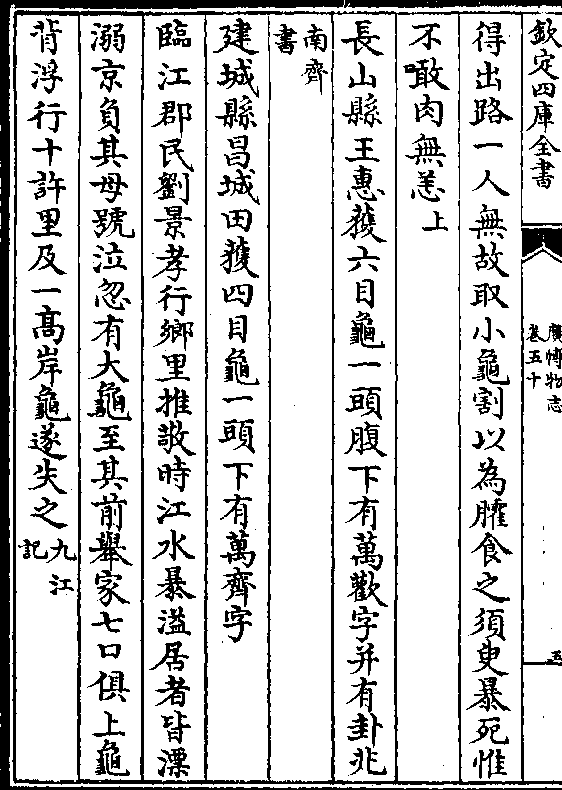 欽定四庫全書
廣博物志
卷五十
五
得出路一人無故取小龜割以為臛食之須臾暴死惟
不噉肉無恙上
長山縣王惠獲六目龜一頭腹下有萬歡字并有卦兆
南齊
書
建城縣昌城田獲四目龜一頭下有萬齊字
臨江郡民劉景孝行鄉里推敬時江水暴溢居者皆漂
溺京負其母號泣忽有大龜至其前舉家七口俱上龜
背浮行十許里及一高岸龜遂失之九江
記